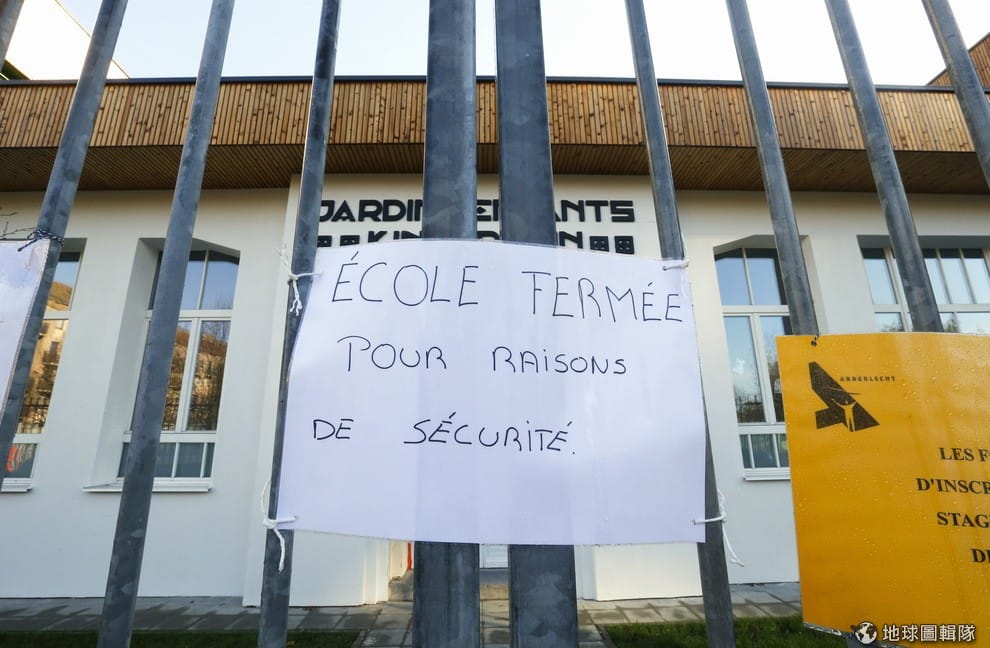 JARDIN
ÉCOLE FERMÉE
POUR RAISONS
DE SÉCURITÉ.
ANDERLECHT
LES
D'INSC
STAG
地球圖輯隊